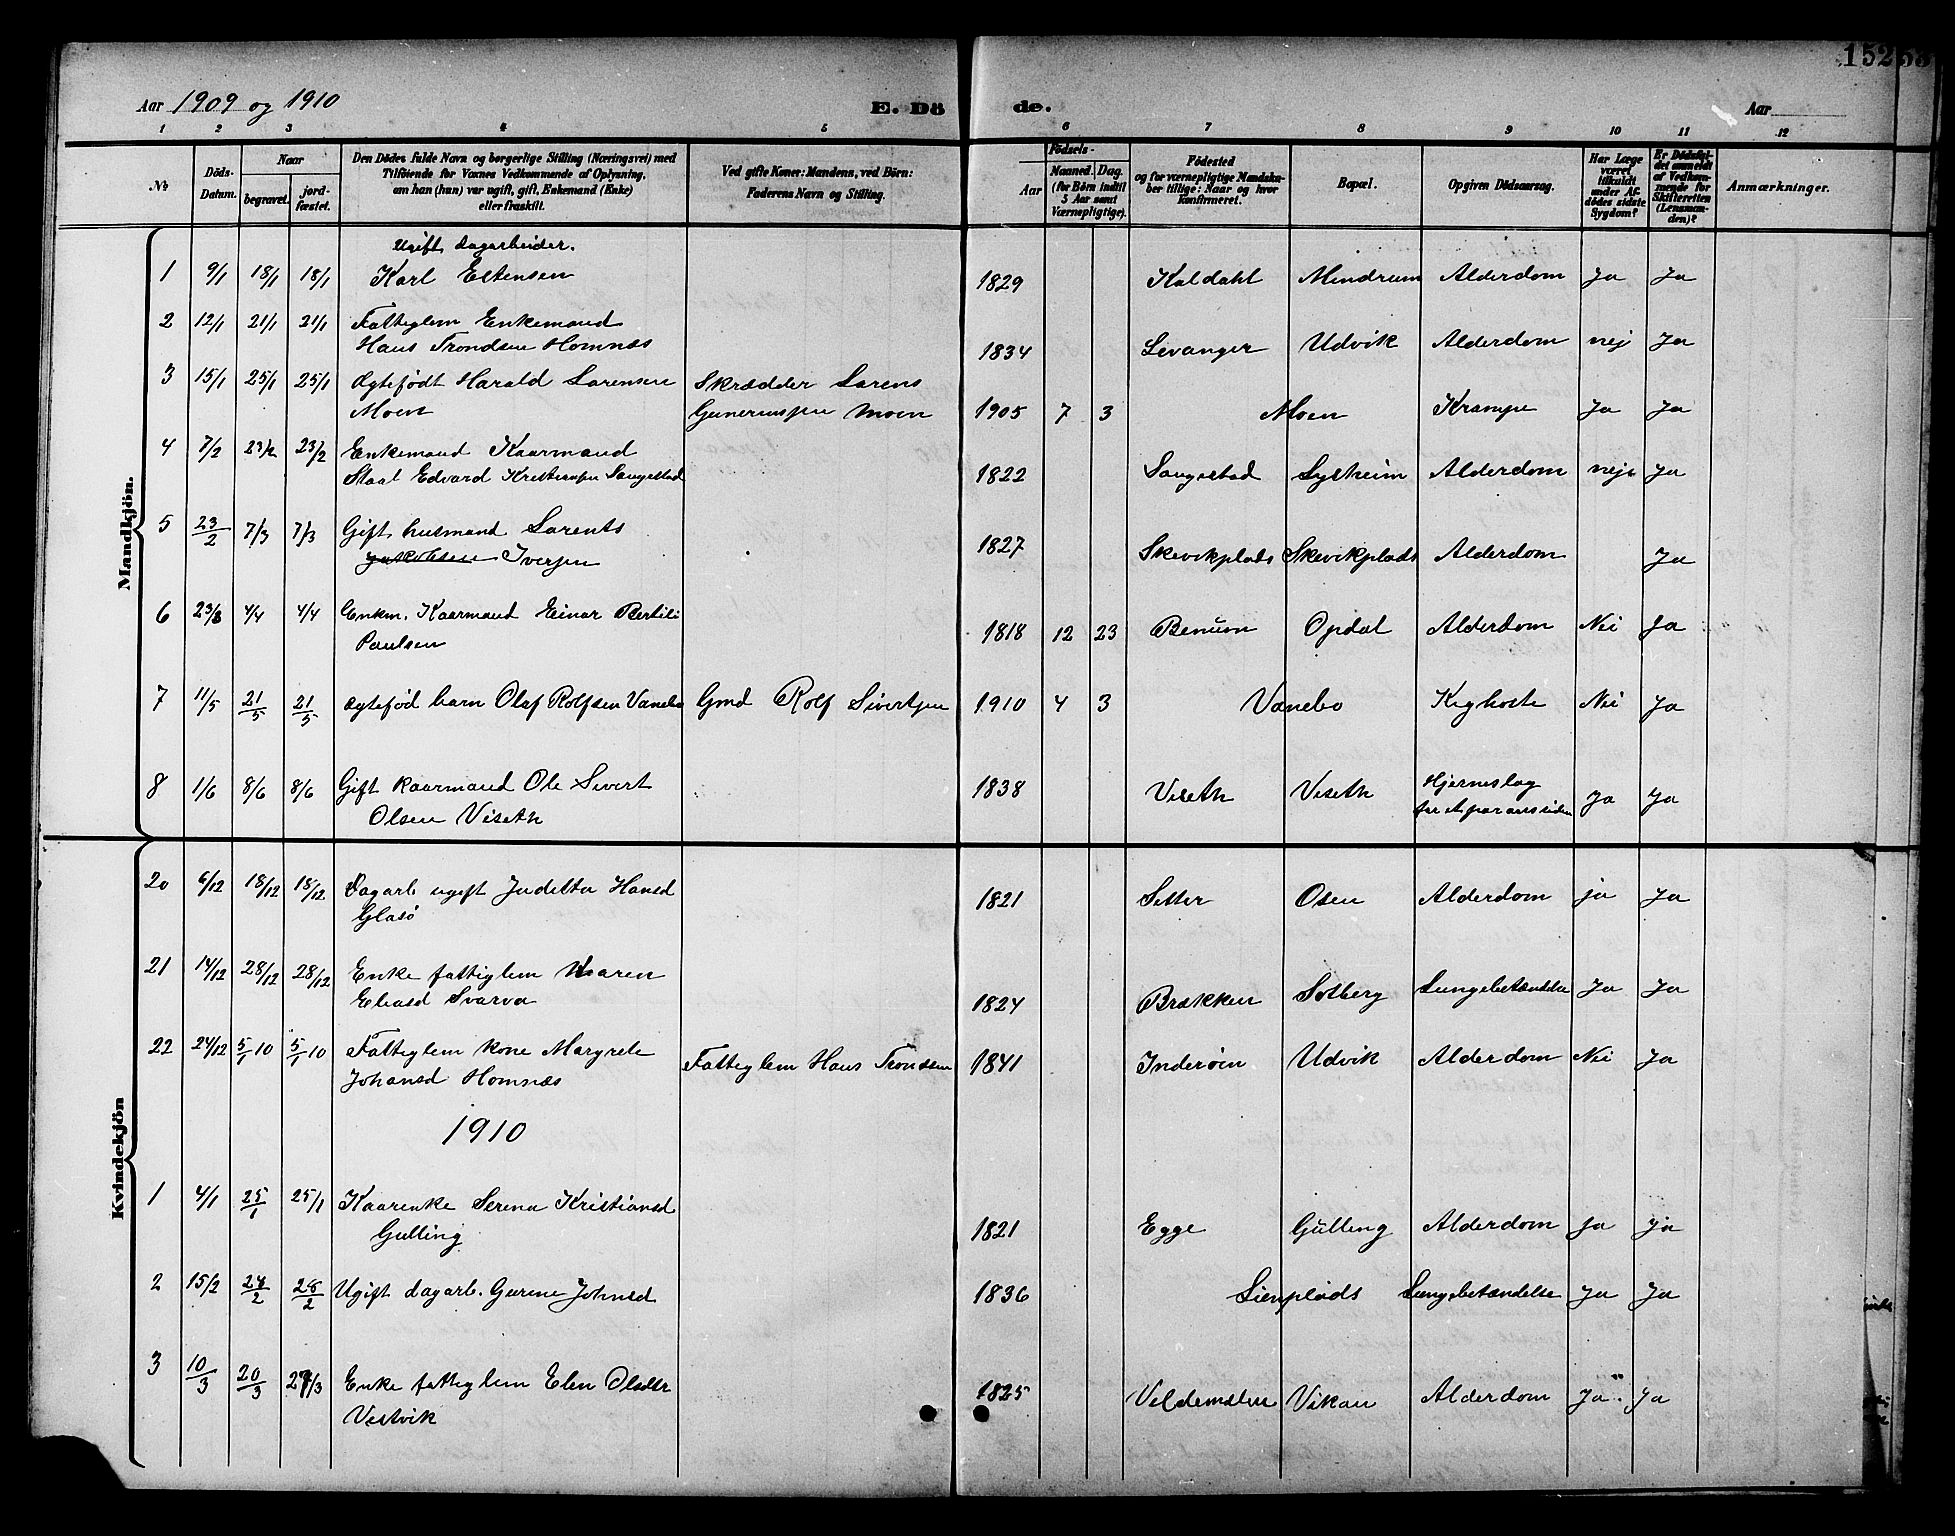 152
Aar 1909 og 1910 E. Dö de. Aar
1 2 3 4 5 6 7 8 9 10 11 12
№ Döds-Datum. Naar begravet. jord-fæstet. Den Dödes fulde Navn og borgerlige Stilling (Næringsvei) med Tilföiende for Voxnes Vedkommende af Oplysning, om han (hun) var ugift, gift, Enkemand (Enke) eller fraskilt. Ved gifte Koner: Mandens, ved Börn: Faderens Navn og Stilling. Födsels- Aar Maaned. Dag. (for Börn indtil 5 Aar samt Værnepligtige). Födested og for værnepligtige Mandskaber tillige: Naar og hvor Konfirmeret. Bopæl. Opgiven Dödsaarsag. Har Læge været tilkaldt under Afdödes sidste Sygdom? Er Dödsfaldet anmeldt af Vedkommende for Skifteretten (Lensmanden)? Anmærkninger.
Mandkjön.
Ugift dagarbeider.
1 9/1 18/1 18/1 Karl Estensen 1829 Kaldahl Mindrum Alderdom Ja Ja
2 12/1 21/1 21/1 Fattiglem Enkemand
Hans Trondsen Homnæs 1834 Levanger Udvik Alderdom nej Ja
3 15/1 25/1 25/1 Ægtefødt Harald Lorensen Skrædder Lorens
Moen Guneriussen Moen 1905 7 3 Moen Krampe Ja Ja
4 7/2 23/2 23/2 Enkemand Kaarmand
Staal Edvard Kristiansen Saugestad 1822 Saugestad Lysheim Alderdom nej Ja
5 23/2 7/3 7/3 Gift husmand Lorents
Jakobsen Iversen 1827 Skevikplads Skevikplads Alderdom Ja
6 23/3 4/4 4/4 Enkm. Kaarmand Einar Bertil
Paulsen 1818 12 23 Benum Opdal Alderdom Nei Ja
7 11/5 21/5 21/5 Ægtefød barn Olaf Rolfsen Vanebo Gmd Rolf Sivertsen 1910 4 3 Vanebo Kighoste Nei Ja
8 1/6 8/6 8/6 Gift kaarmand Ole Sivert
Olsen Viseth 1838 Viseth Viseth Hjerneslag
for et par aar siden Ja Ja
Kvindekjön
20 6/12 18/12 18/12 Dagarb. ugift Judelta Hansd
Glasø 1821 Setter Osen Alderdom ja Ja
21 14/12 28/12 28/12 Enke fattiglem Maren
Eliasd Svarva 1824 Brækken Solberg Lungebetændelse Ja Ja
22 24/12 5/1 10 5/1 10 Fattiglem kone Margrete Fattiglem Hans Trondsen 1841 Inderøin Udvik Alderdom Nei Ja
Johansd Homnæs
1910
1 4/1 25/1 25/1 Kaarenke Serena Kristiansd
Gulling 1821 Egge Gulling Alderdom Ja Ja
2 15/2 28/2 28/2 Ugift dagarb. Gurine Johnsd 1836 Lienplads Lungebetændelse Ja Ja
3 10/3 20/3 Enke fattiglem Elen Olsdtr
Vestvik 1825 Veldemelen Vikan Alderdom Ja Ja